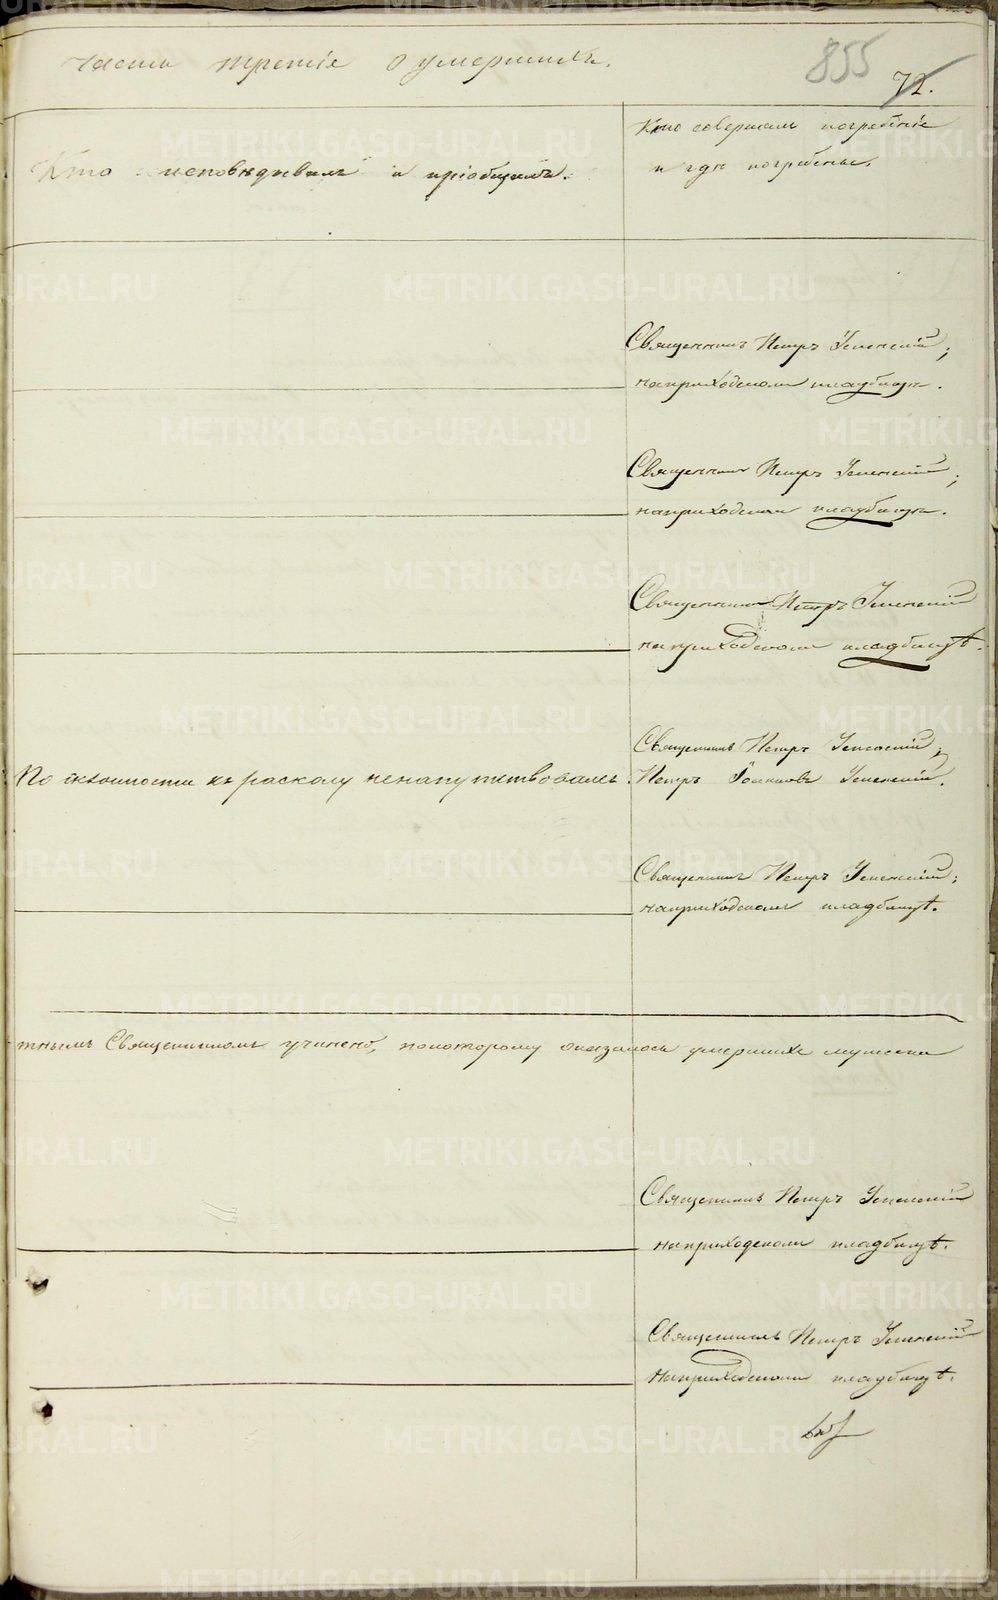 Часть третія о умершихъ.
855
72.
Кто исповѣдывалъ и пріобщалъ.
Кто совершалъ погребеніе
и гдѣ погребены.
Священникъ Петръ Успенскій;
на приходскомъ кладбищѣ.
Священникъ Петръ Успенскій;
на приходскомъ кладбищѣ.
Священникъ Петръ Успенскій
на приходскомъ кладбищѣ.
По склонности къ расколу ненапутствовалъ
Священникъ Петръ Успенскій;
Петръ Іоанновъ Успенскій.
Священникъ Петръ Успенскій;
на приходскомъ кладбищѣ.
тнымъ Священникомъ учинено, покоторому оказалось умершихъ мужеска
Священникъ Петръ Успенскій
на приходскомъ кладбищѣ.
Священникъ Петръ Успенскій
На приходскомъ кладбищѣ.
METRIKI.GASO-URAL.RU